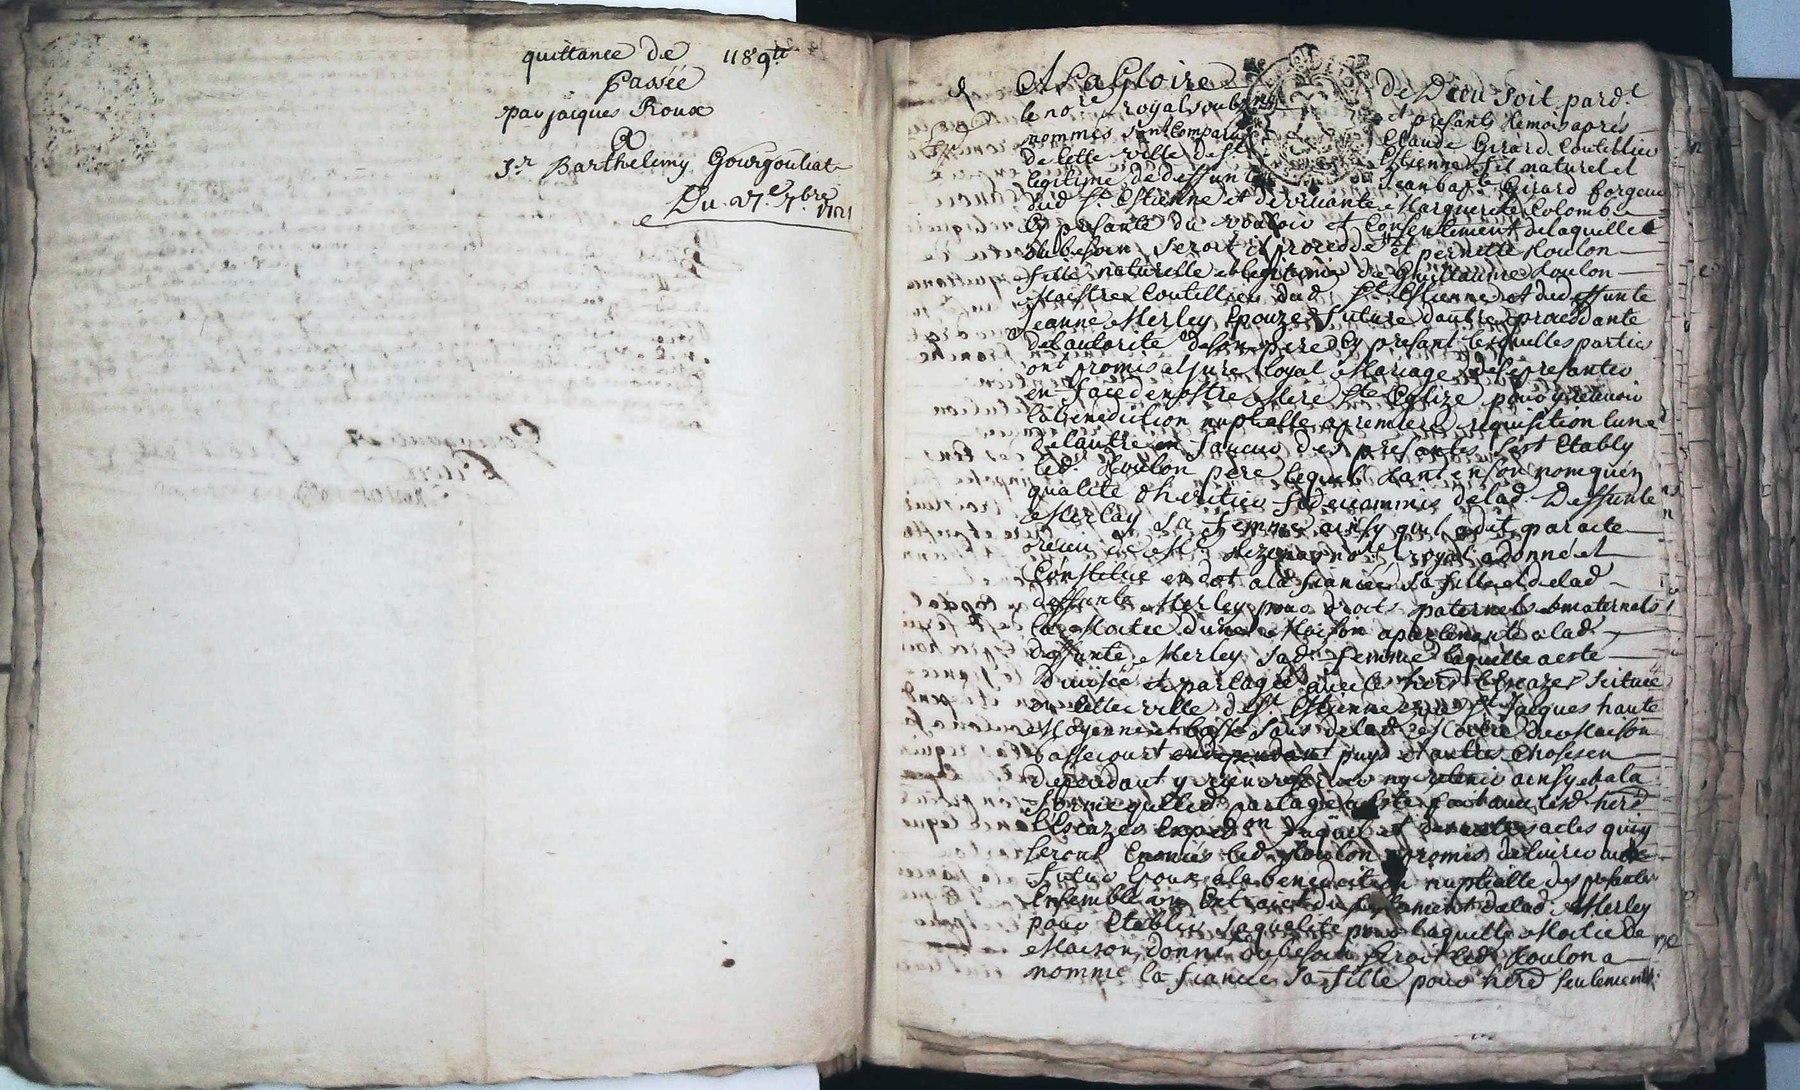 quittance de 1189tt
Passée
par jacques Roux
A
Sr Barthelemy Gourgouliat
Du 27e 7bre 1721
A La Gloire de Dieu soit pardt
le nore royal soubzne et presants temoins apres
nommes sont comparu Claude Girard Coutellier
de cette ville de St Estienne fil naturel et
legitime de deffunt Jean bapte Girard forgeur
dud St Estienne et de vivante Marguerite Colombe
Cy presante du vouloir et Consentement de laquelle
au besoin seroit il procedde et pernette Koulon
fille naturelle et legitime de Guillaume Koulon
Maistre Coutellier dud St Estienne et de deffunte
jeanne Merley Epouze future dautre procedante
de lautorité de son pere Cy presant lesquelles parties
ont promis et juré loyal Mariage de se presanter
en face de nostre Mere Ste Eglize pour y recevoir
la benediction nuptialle a premiere requisition lune
de lautre en faveur des presantes sest Etably
led. Koulon pere lequel tant en son nom quen
qualité dheritier fideicommis de lad Deffunte
Merley sa femme ainsy quil a dit par acte
receu Me nore royal a donné et
Constitué en dot a la fiancée sa fille et de lad
deffunte Merley pour droits paternels et maternels
la Moitié dune Maison apartenante a lad
deffunte Merley sad femme laquelle a esté
Divisée et partagée avec les herd Escazes scituée
en cette ville de St Estienne rue St Jacques haute
Moyenne et basse dans de lad Moitié de Maison
bassecourt puys et autres choses en
dependant y rien reserver ny retenir ainsy et a la
forme que led partage a esté fait avec lesd herd
Escazes et autres actes quy
seront Enoncés led Koulon promis delivrer aud
futur Epoux a la benediction nuptialle des presantes
Ensemble un Extraict du testament de lad Merley
pour Etablir sa qualité pour laquelle Moitié de
Maison donné au besoin seroit led Koulon a
nommé la fiancée sa fille pour herd seulement